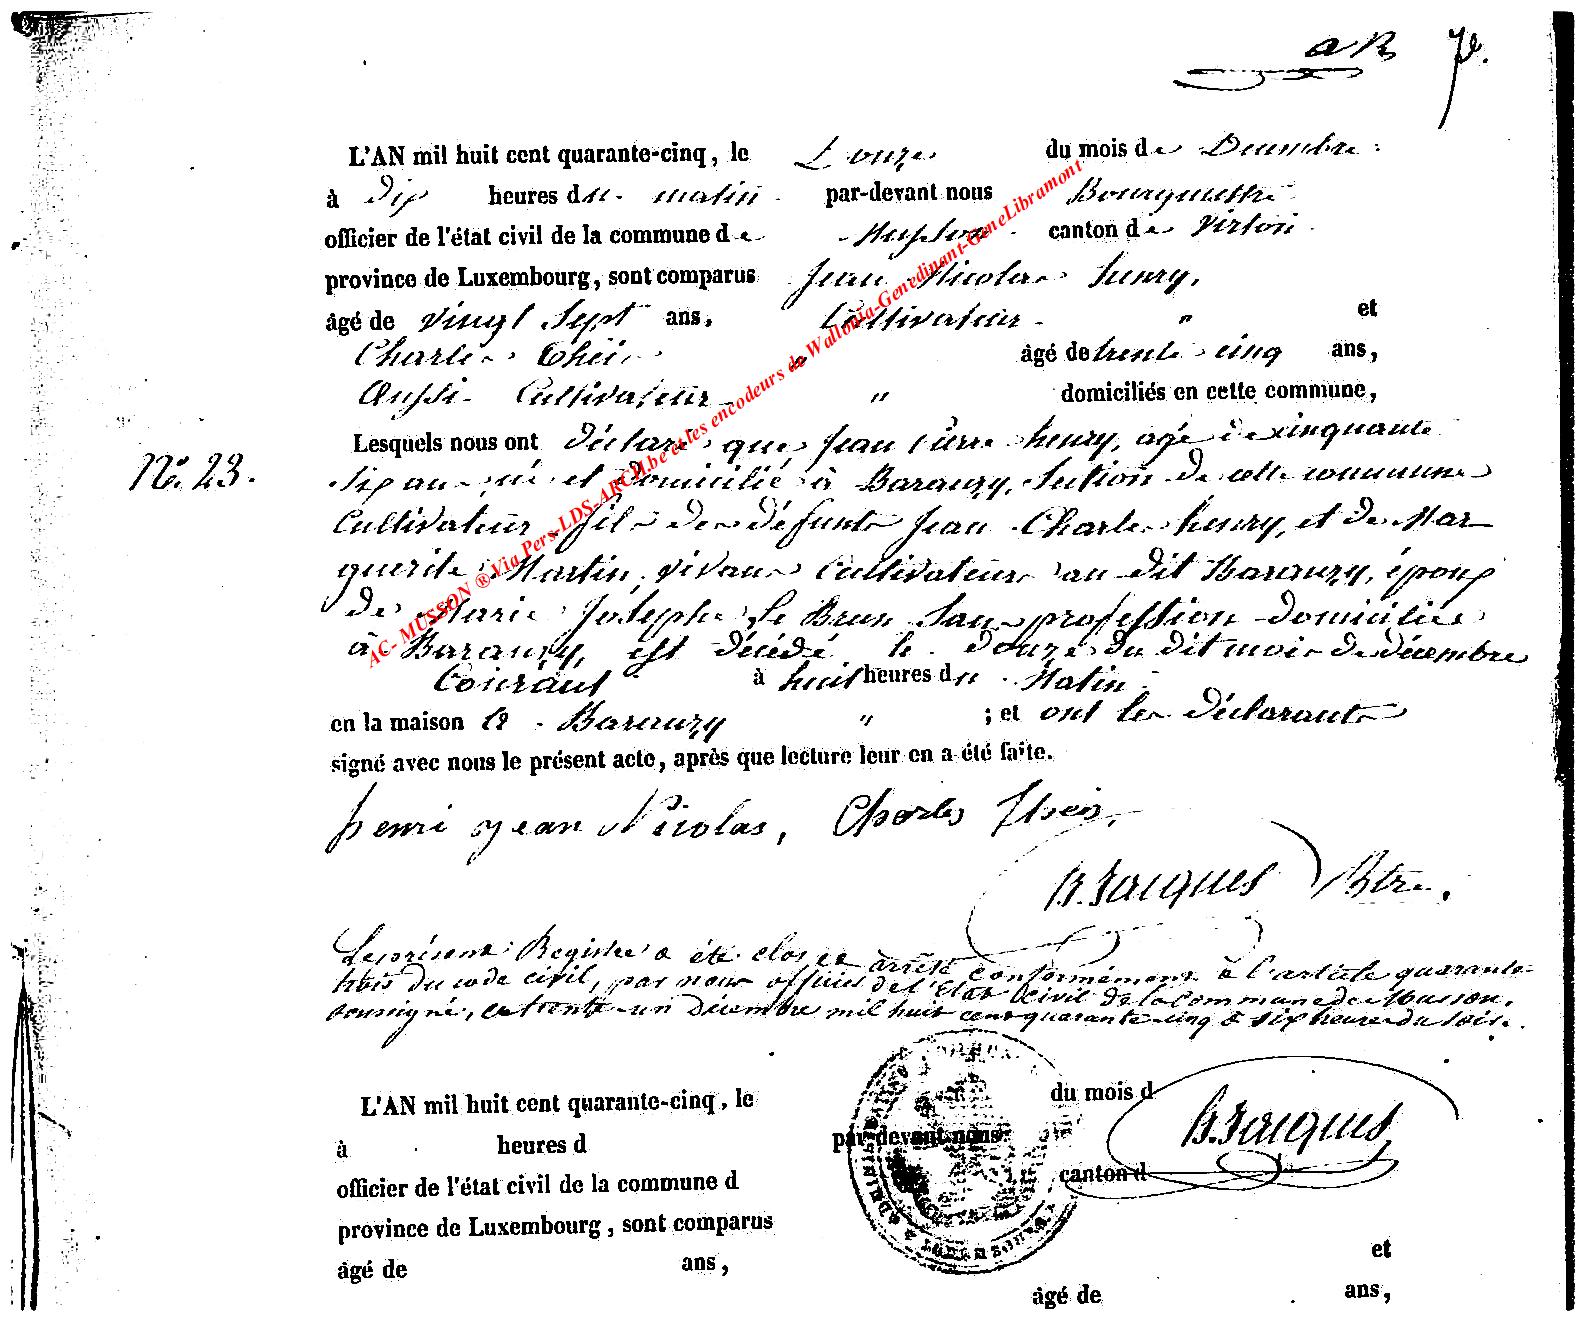 aR 7e.
L'AN mil huit cent quarante-cinq, le Douze du mois de Decembre
à dix heures du matin par-devant nous Bourgmestre
officier de l'état civil de la commune de Musson canton de Virton
province de Luxembourg, sont comparus Jean Nicolas henry,
âgé de vingt Sept ans, Cultivateur " et
Charles Théis " âgé de trente cinq ans,
Aussi Cultivateur " domiciliés en cette commune,
Lesquels nous ont déclaré que Jean Pierre henry, agé de cinquante
No. 23.
Six ans né et domicilié à Baranzy, Section de cette commune
Cultivateur fils des défunts Jean Charles henry, et de Mar
guerite Martin, vivans Cultivateurs au dit Baranzy, époux
de Marie Josephe Le Brun Sans profession domiciliée
à Baranzy, est décédé le douze du dit mois de décembre
Courant à huit heures du Matin
en la maison à Baranzy " ; et ont les déclarants
signé avec nous le présent acte, après que lecture leur en a été faite.
henri jean Nicolas, Charles Theis,
B. Jacques Btre.
Le présent Registre a été clos et arrêté conformément à l'article quarante
trois du code civil, par nous officier de l'Etat civil de la Commune de Musson,
soussigné, ce trente-un Décembre mil huit cent quarante-cinq à six heures du soir.
L'AN mil huit cent quarante-cinq, le du mois d
B. Jacques
à heures d par-devant nous
officier de l'état civil de la commune d canton d
province de Luxembourg, sont comparus
âgé de ans, et
âgé de ans,
AC- MUSSON ® Via Pers-LDS-ARCH.be et les encodeurs de Wallonia-Genedinant-GeneLibramont